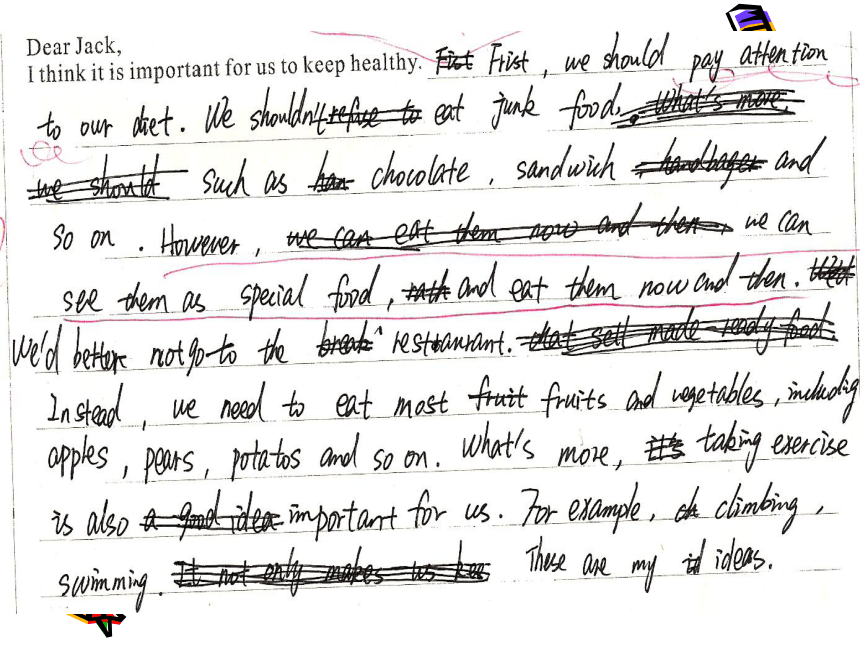 Dear Jack,
I think it is important for us to keep healthy. Fist Frist, we should pay attention
to our diet. We shouldn't refuse to eat junk food. What's more,
we should such as han chocolate, sandwich handbager and
so on. However, we can eat them now and then, we can
see them as special food, rath and eat them now and then.
We'd better not go to the break restaurant. that sell made ready food.
Instead, we need to eat most fruit fruits and vegetables, including
apples, pears, potatos and so on. What's more, it's taking exercise
is also a good idea important for us. For example, ch climbing,
swimming. It not only makes us kee These are my id ideas.